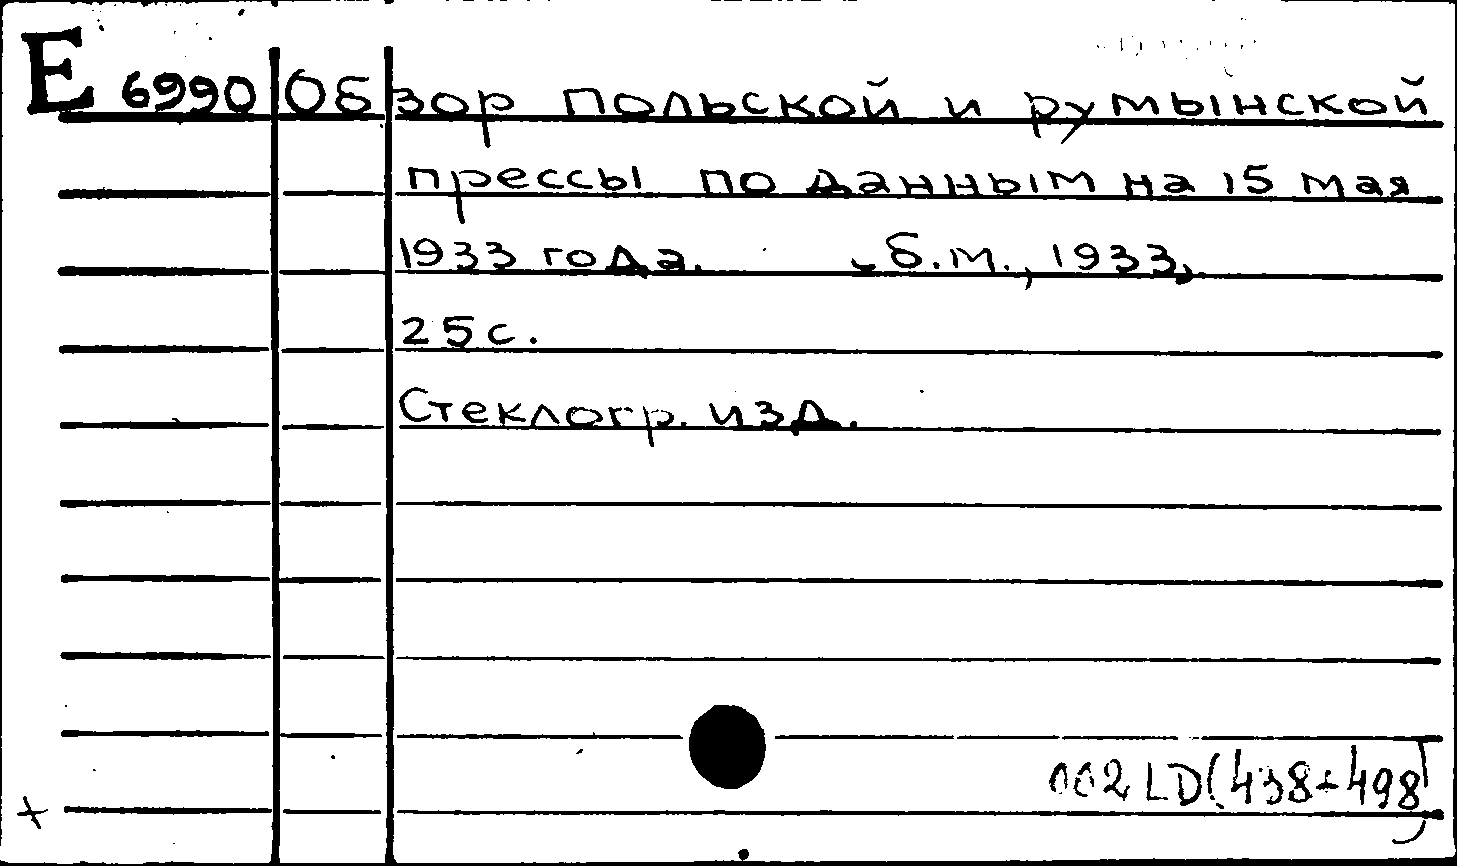 E 6990 Обзор польской и румынской
прессы по данным на 15 мая
1933 года. б.м., 1933,
25 с.
Стеклогр. изд.
002 LD (438+498)
+